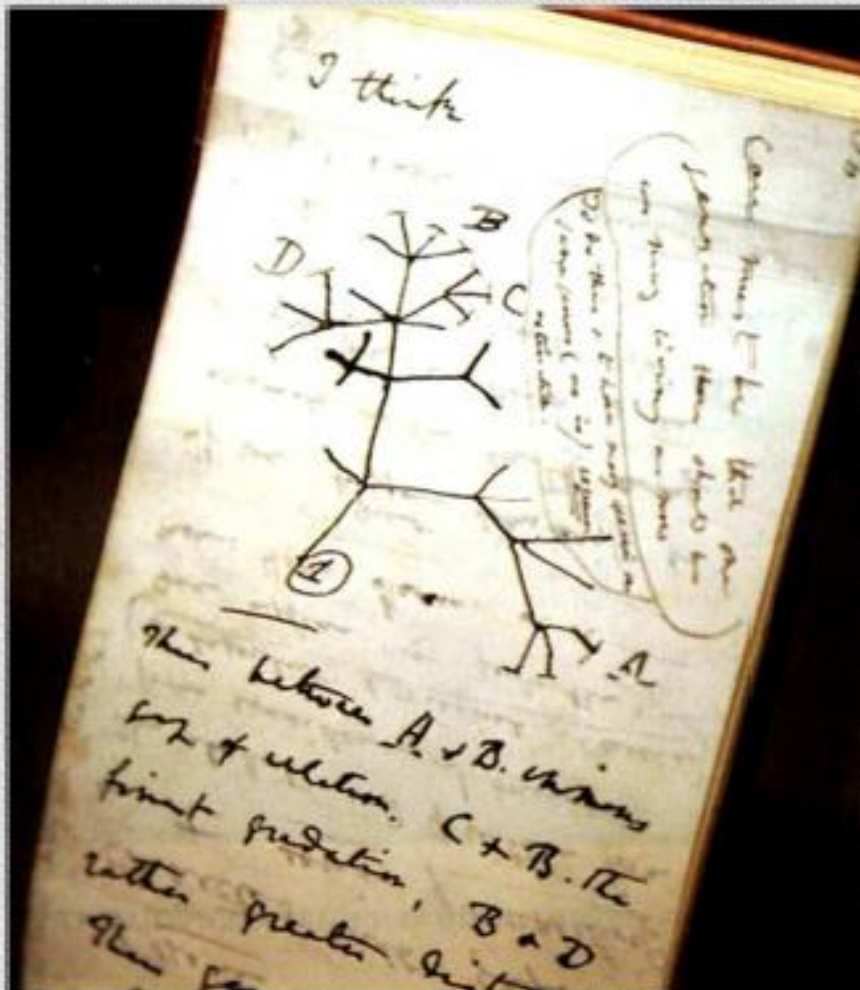 I think
B
D
C
A
1
Case must be that one
generation then should be
as many living as now
To do this & to have many species in
same genus (as is) requires
extinction.
Thus between A. & B. immense
gap of relation. C + B. The
finest gradation, B & D
rather greater
Thus